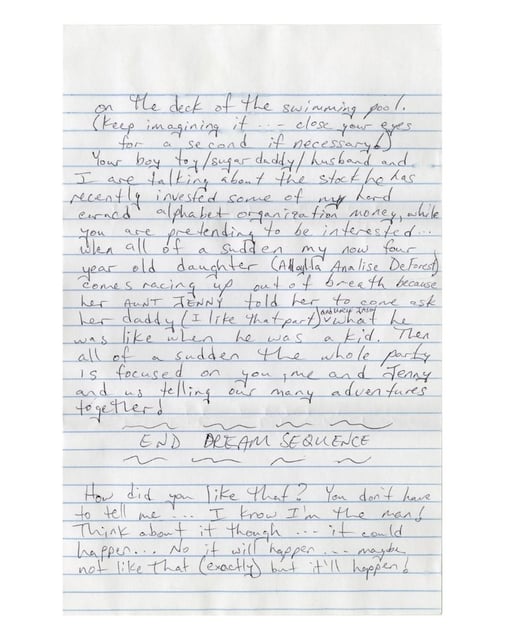 on the deck of the swimming pool.
(Keep imagining it ... - close your eyes
for a second if necessary!)
Your boy toy/sugar daddy/husband and
I are talking about the stock he has
recently invested some of my hard
earned alphabet organization money, while
you are pretending to be interested...
when all of a sudden my now four
year old daughter (Analise DeForest)
comes racing up out of breath because
her AUNT JENNY told her to come ask
her daddy (I like that part) what he
was like when he was a kid. Then
all of a sudden the whole party
is focused on you, me and Jenny
and us telling our many adventures
together!
END DREAM SEQUENCE
How did you like that? You don't have
to tell me ... I know I'm the man!
Think about it though ... it could
happen... No it will happen ... maybe
not like that (exactly) but it'll happen!